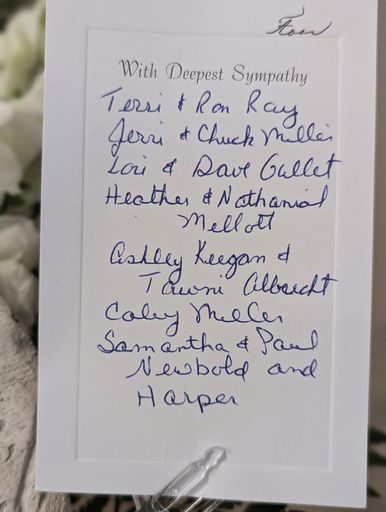 Floor
With Deepest Sympathy
Terri & Ron Ray
Jerri & Chuck Miller
Lori & Dave Gullet
Heather & Nathanial
Mellott
Ashley Keegan &
Tawni Albrecht
Caley Miller
Samantha & Paul
Newbold and
Harper